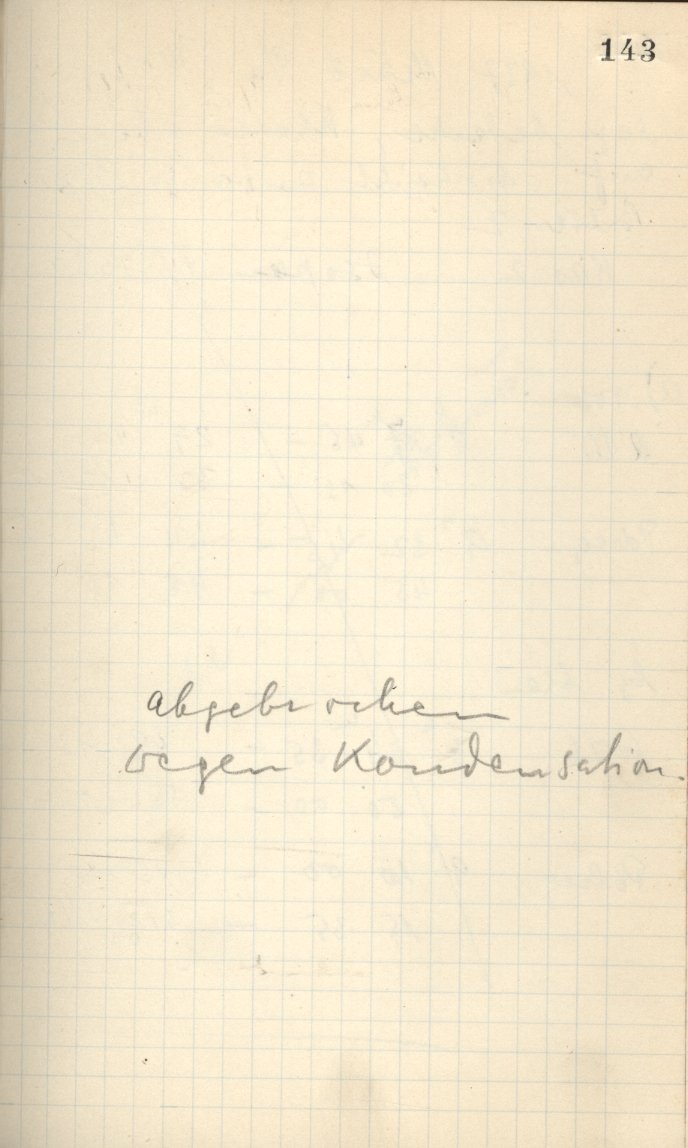 143
abgebrochen
wegen Kondensation.